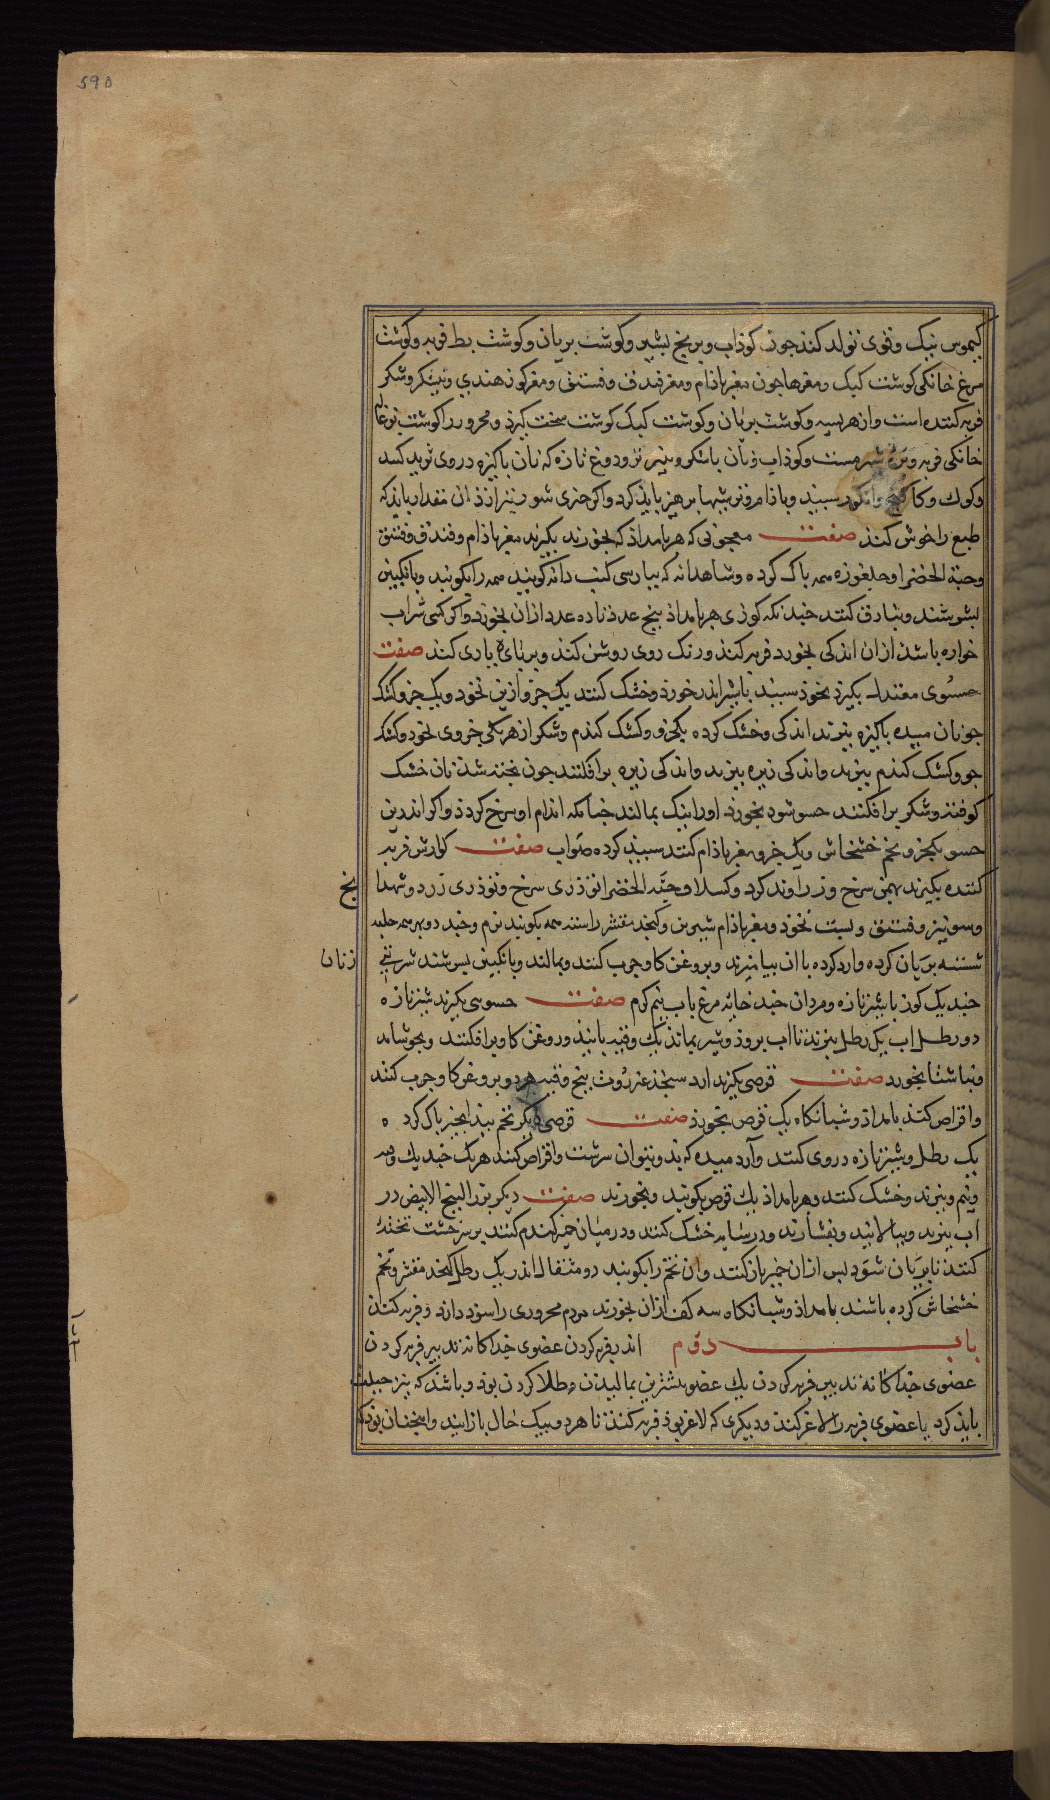 590
کیموس نیک و قوی تولد کند جون کوذاب و برنج بشیر و کوشت بریان و کوشت بط فربه و کوشت
مرغ خانکی کوشت کبک و مغزها جون مغز باذام و مغز فندق و فستق و مغز کوز هندی و نیشکر و شکر
فربه کننده است و از هریسه و کوشت بریان و کوشت کبک کوشت سخت کیرد و محرور را کوشت بزغاله
خانکی فربه و بره شیرمست و کوذاب و نان با شکر و شیر تر و دوغ تازه که نان باکیزه در وی ثرید کنند
و کوک و کاکنج و انکور سبید و باذام و تربیتها برهیز بایذ کرد و اکر جیزی شور نیز از ذان مقدار بایذ که
طبع را خوش کند صفت معجونی که هر بامداذ که بخورند بکیرند مغز باذام و فندق و فستق
و حبة الخضرا و جلغوزه همه باک کرده و شاهدانه که ببارسی کنب دانه کویند همه را بکوبند و بانکبین
بشوشند و بنادق کنند جندانکه کوزی هر بامداذ بنج عدد تا ده عدد ازان بخورد و اکر کسی شراب
خواره باشد ازان اندکی بخورد فربه کند و رنک روی روشن کند و بر باه یاری کند صفت
حسوی معتدل بکیرذ نخوذ سبید باشیر اندر خورد و خشک کنند یک جزو ازین نخود و یک جزو کشک
جو نان میده باکیزه بنیرند اندکی و خشک کرده یکجزو و کشک کندم و شکر از هر یکی جزوی نخود و کشک
جو و کشک کندم ببزند و اندکی زیره ببزند و اندکی زیره برافکنند جون بخته شد نان خشک
کوفته و شکر برافکنند حسو شود بخورد او را نیک بمالند جنانکه اندام او سرخ کردد و اکر اندرین
حسو یکجزو تخم خشخاش و یک جزو مغز باذام کنند سبید کرده صواب صفت کوارش فربه
کننده بکیرند بهمن سرخ و زراوند کرد و کسلا و حبة الخضرا و تودری سرخ و توذری زرد و شهدا نج
و سونیز و فستق و بست نخوذ و مغز باذام شیرین و کنجد مقشر راستا همه بکوبند نرم و جند دو بهر همه حلبه
شسته بریان کرده و ارد کرده با ان بیامیزند و بروغن کاو جرب کنند و بمالند و بانکبین بسرشند شربتی زنان
جند یک کوز با شیر تازه و مردان جند خایه مرغ باب نیم کرم صفت حسوی بکیرند شیر تازه
دو رطل اب یک رطل ببزند تا اب برود و شیر بماند یک وقیه بانیذ و روغن کاو برافکنند و بجوشاند
و ناشتا بخورد صفت قرصی بکیرند ارد سنجذ عنزروت بنج وقیه هر دو بروغن کاو جرب کنند
و اقراص کنند بامداذ و شبانکاه یک قرص بخورذ صفت قرصی دیکر تخم بیدانجیر باک کرده
یک رطل و شیر تازه در وی کنند و آرد میده که بدو بتوان سرشت و اقراص کنند هر یک جند یک وقیه
و نیم و ببزند و خشک کنند و هر بامداذ یک قرص بکوبند و بخورند صفت دیکر بزر البنج الابیض در
اب ببزند و ببالایند و بفشارند و در سایه خشک کنند و در میان خمیر کندم کنند بر سر خشت بخته
کنند تا بریان شود بس ازان خمیر باز کنند و ان تخم را بکوبند دو مثقال اندر یک رطل کنجد مقشر و تخم
خشخاش کرده باشند بامداذ و شبانکاه سه کف ازان بخورند مردم محروری را سوذ دارد و فربه کند
باب دوم اندر فربه کردن عضوی جداکانه تدبیر فربه کردن
عضوی جداکانه تدبیر فربه کردن یک عضو بیشترین بمالیدن و طلا کردن بوذ و باشذ که نیز حیلت
بایذ کرد تا عضوی فربه را لاغر کند و دیکری که لاغر بوذ فربه کند تا هر دو بیک حال باز اید و انجنان بود که